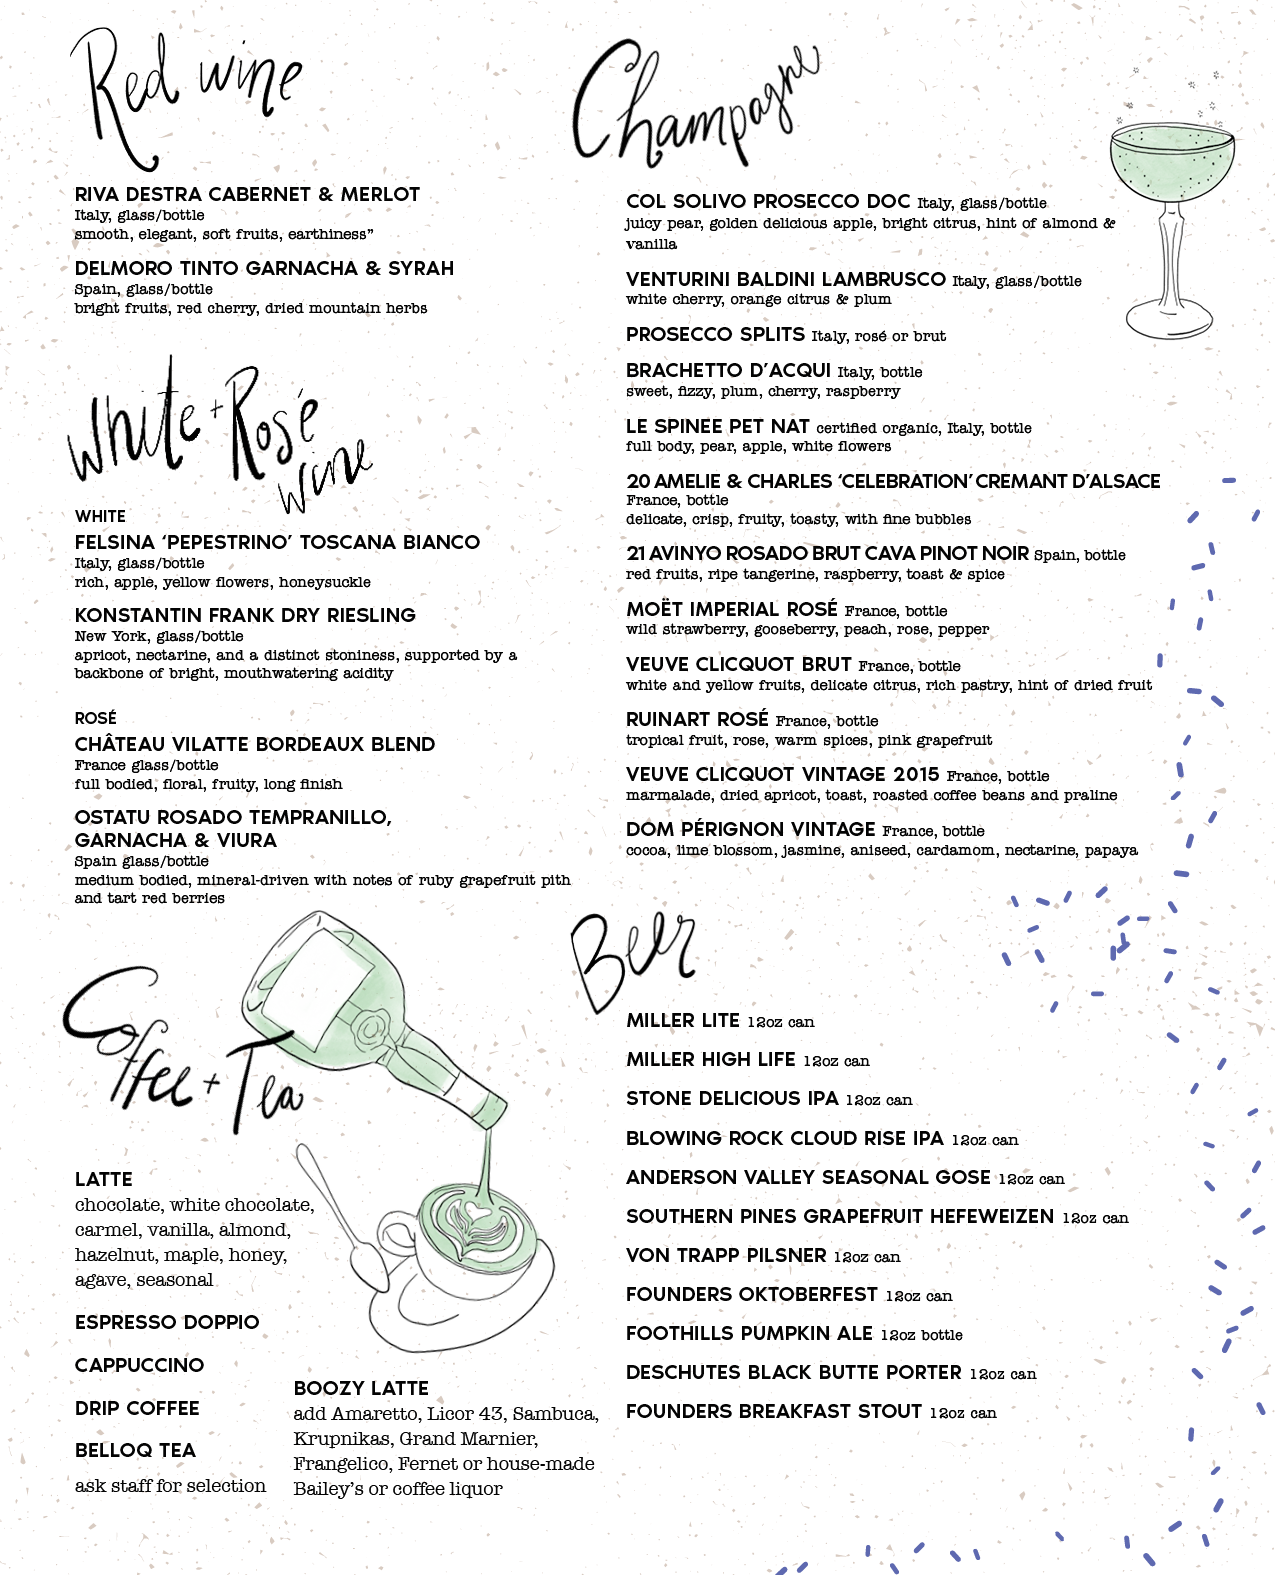 Red wine
RIVA DESTRA CABERNET & MERLOT
Italy, glass/bottle
smooth, elegant, soft fruits, earthiness”
DELMORO TINTO GARNACHA & SYRAH
Spain, glass/bottle
bright fruits, red cherry, dried mountain herbs
White + Rosé
wine
WHITE
FELSINA ‘PEPESTRINO’ TOSCANA BIANCO
Italy, glass/bottle
rich, apple, yellow flowers, honeysuckle
KONSTANTIN FRANK DRY RIESLING
New York, glass/bottle
apricot, nectarine, and a distinct stoniness, supported by a
backbone of bright, mouthwatering acidity
ROSÉ
CHÂTEAU VILATTE BORDEAUX BLEND
France glass/bottle
full bodied, floral, fruity, long finish
OSTATU ROSADO TEMPRANILLO,
GARNACHA & VIURA
Spain glass/bottle
medium bodied, mineral-driven with notes of ruby grapefruit pith
and tart red berries
Coffee + Tea
LATTE
chocolate, white chocolate,
carmel, vanilla, almond,
hazelnut, maple, honey,
agave, seasonal
ESPRESSO DOPPIO
CAPPUCCINO
DRIP COFFEE
BELLOQ TEA
ask staff for selection
BOOZY LATTE
add Amaretto, Licor 43, Sambuca,
Krupnikas, Grand Marnier,
Frangelico, Fernet or house-made
Bailey’s or coffee liquor
Champagne
COL SOLIVO PROSECCO DOC Italy, glass/bottle
juicy pear, golden delicious apple, bright citrus, hint of almond &
vanilla
VENTURINI BALDINI LAMBRUSCO Italy, glass/bottle
white cherry, orange citrus & plum
PROSECCO SPLITS Italy, rosé or brut
BRACHETTO D’ACQUI Italy, bottle
sweet, fizzy, plum, cherry, raspberry
LE SPINEE PET NAT certified organic, Italy, bottle
full body, pear, apple, white flowers
20 AMELIE & CHARLES ‘CELEBRATION’ CREMANT D’ALSACE
France, bottle
delicate, crisp, fruity, toasty, with fine bubbles
21 AVINYO ROSADO BRUT CAVA PINOT NOIR Spain, bottle
red fruits, ripe tangerine, raspberry, toast & spice
MOËT IMPERIAL ROSÉ France, bottle
wild strawberry, gooseberry, peach, rose, pepper
VEUVE CLICQUOT BRUT France, bottle
white and yellow fruits, delicate citrus, rich pastry, hint of dried fruit
RUINART ROSÉ France, bottle
tropical fruit, rose, warm spices, pink grapefruit
VEUVE CLICQUOT VINTAGE 2015 France, bottle
marmalade, dried apricot, toast, roasted coffee beans and praline
DOM PÉRIGNON VINTAGE France, bottle
cocoa, lime blossom, jasmine, aniseed, cardamom, nectarine, papaya
Beer
MILLER LITE 12oz can
MILLER HIGH LIFE 12oz can
STONE DELICIOUS IPA 12oz can
BLOWING ROCK CLOUD RISE IPA 12oz can
ANDERSON VALLEY SEASONAL GOSE 12oz can
SOUTHERN PINES GRAPEFRUIT HEFEWEIZEN 12oz can
VON TRAPP PILSNER 12oz can
FOUNDERS OKTOBERFEST 12oz can
FOOTHILLS PUMPKIN ALE 12oz bottle
DESCHUTES BLACK BUTTE PORTER 12oz can
FOUNDERS BREAKFAST STOUT 12oz can